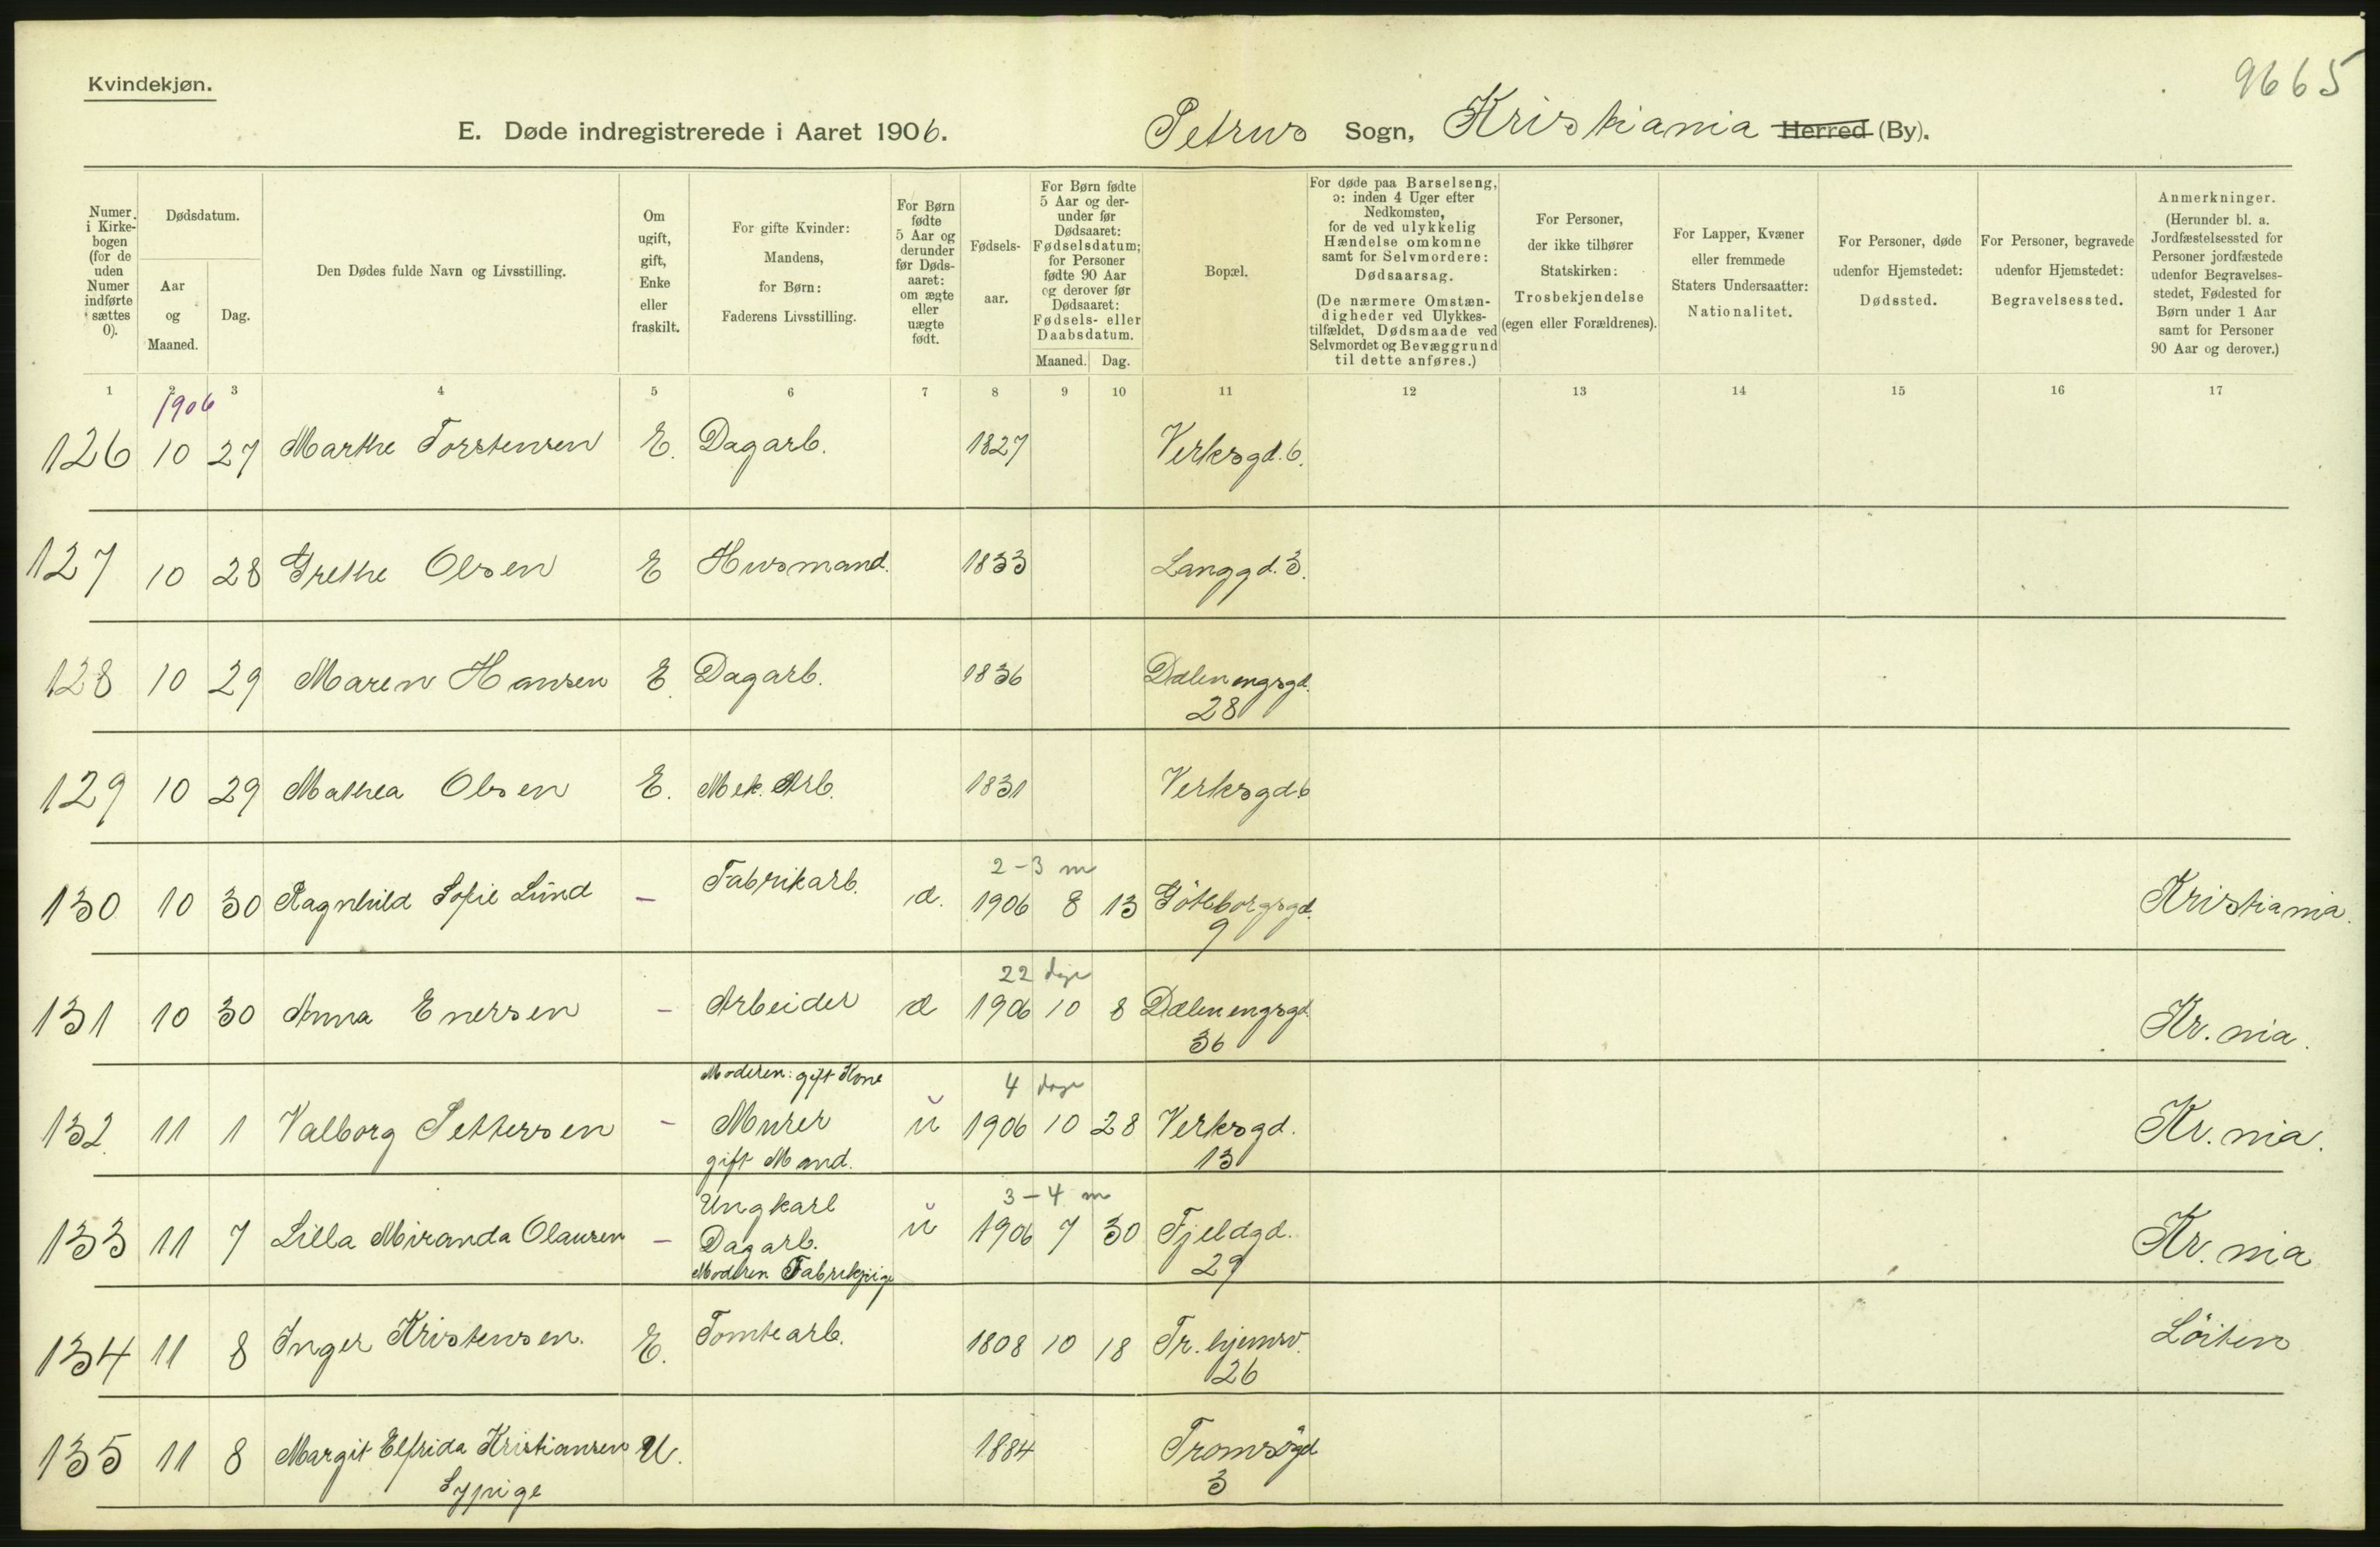 9665
Kvindekjøn.
E. Døde indregistrerede i Aaret 1906. Petrus Sogn, Kristiania Herred (By).
Numer i Kirke-bogen (for de uden Numer indførte sættes 0).
Dødsdatum.
Aar og Maaned.
Dag.
Den Dødes fulde Navn og Livsstilling.
Om ugift, gift, Enke eller fraskilt.
For gifte Kvinder: Mandens, for Børn: Faderens Livsstilling.
For Børn fødte 5 Aar og derunder før Døds-aaret: om ægte eller uægte født.
Fødsels-aar.
For Børn fødte 5 Aar og der-under før Dødsaaret: Fødselsdatum; for Personer fødte 90 Aar og derover før Dødsaaret: Fødsels- eller Daabsdatum.
Maaned. Dag.
Bopæl.
For døde paa Barselseng, ɔ: inden 4 Uger efter Nedkomsten, for de ved ulykkelig Hændelse omkomne samt for Selvmordere: Dødsaarsag.
(De nærmere Omstæn-digheder ved Ulykkes-tilfældet, Dødsmaade ved Selvmordet og Bevæggrund til dette anføres.)
For Personer, der ikke tilhører Statskirken: Trosbekjendelse (egen eller Forældrenes).
For Lapper, Kvæner eller fremmede Staters Undersaatter: Nationalitet.
For Personer, døde udenfor Hjemstedet: Dødssted.
For Personer, begravede udenfor Hjemstedet: Begravelsessted.
Anmerkninger.
(Herunder bl. a. Jordfæstelsessted for Personer jordfæstede udenfor Begravelses-stedet, Fødested for Børn under 1 Aar samt for Personer 90 Aar og derover.)
1 2 3 4 5 6 7 8 9 10 11 12 13 14 15 16 17
1906
126 10 27 Marthe Torstensen E. Dagarb. 1827 Verksgd. 6.
127 10 28 Grethe Olsen E Husmand. 1833 Langgd. 3.
128 10 29 Maren Hansen E. Dagarb. 1836 Dælenengsgd.
28
129 10 29 Mathea Olsen E. Mek. Arb. 1831 Verksgd 6
2-3 m
130 10 30 Ragnhild Sofie Lund - Fabrikarb. æ. 1906 8 13 Göteborgsgd. Kristiania.
9
22 dage
131 10 30 Anna Enersen - Arbeider æ 1906 10 8 Dælenengsgd. Kr.nia.
36
Moderen: gift Kone 4 dage
132. 11 1 Valborg Pettersen - Murer u 1906 10 28 Verksgd. Kr.nia.
gift Mand. 13
Ungkarl 3-4 m
133 11 7 Lilla Miranda Olausen - Dagarb. u 1906 7 30 Fjeldgd. Kr.nia
Moderen Fabrikpige 29
134 11 8 Inger Kristensen. E. Tomtearb. 1808 10 18 Tr.hjemsv. Löiten
26
135 11 8 Margit Elfrida Kristiansen U. 1884 Tromsögd
Sypige 3